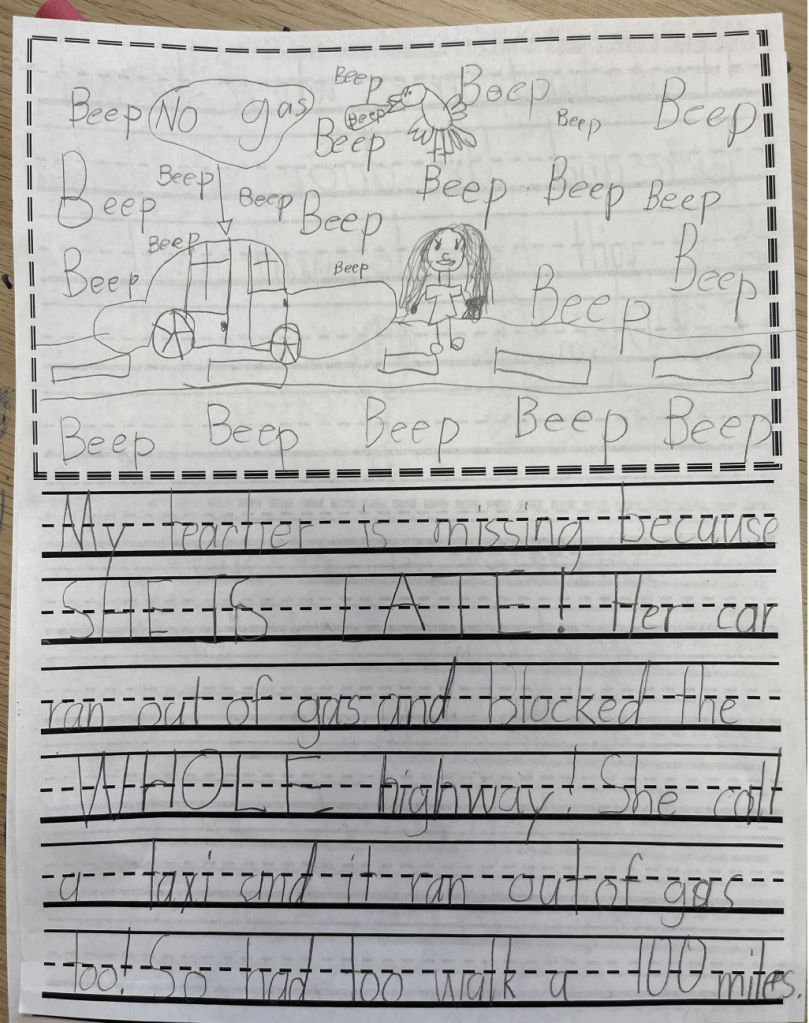 Beep
Beep No gas Beep Beep Boep Beep Beep
Beep Beep Beep Beep Beep Beep Beep Beep
Beep Beep Beep Beep Beep
Beep Beep Beep Beep Beep
My teacher is missing because
SHE IS LATE! Her car
ran out of gas and blocked the
WHOLE highway! She call
a taxi and it ran out of gas
too! So had too walk a 100 miles.